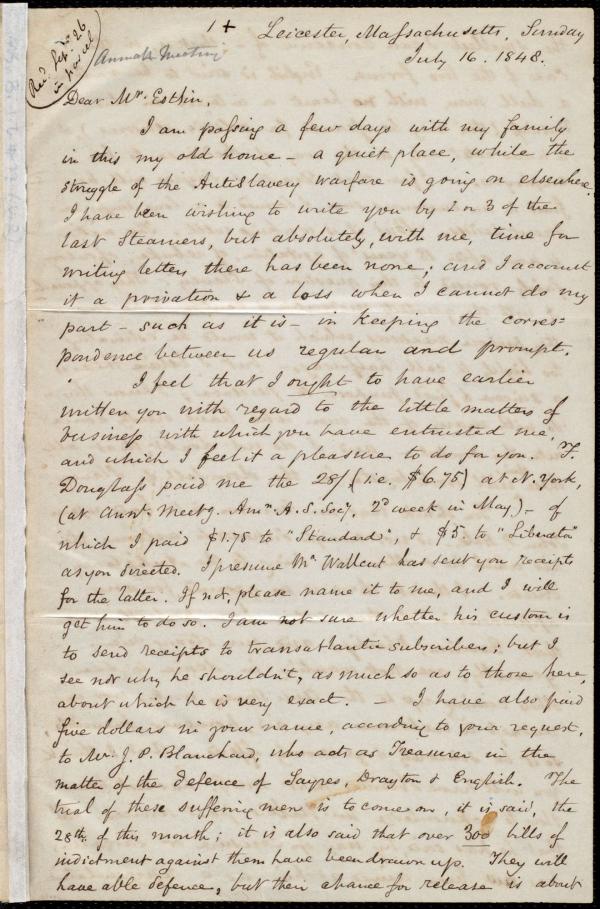 1 +
Leicester, Massachusetts, Sunday
July 16. 1848.
Recd. Sep. 26
in parcel
Annual Meeting
Dear Mr. Estlin,
I am passing a few days with my family
in this my old home – a quiet place, while the
struggle of the AntiSlavery warfare is going on elsewhere.
I have been wishing to write you by 2 or 3 of the
last Steamers, but absolutely, with me, time for
writing letters there has been none; and I account
it a privation & a loss when I cannot do my
part – such as it is – in keeping the corres=
pondence between us regular and prompt.
I feel that I ought to have earlier
written you with regard to the little matters of
business with which you have entrusted me,
and which I feel it a pleasure to do for you. F.
Douglass paid me the 28/ (i.e. $6.75) at N. York,
(at Annl. Meetg. Amn. A. S. Socy, 2d week in May) – of
which I paid $1.75 to "Standard", & $5. to "Liberator"
as you directed. I presume Mr. Wallcut has sent you receipts
for the latter. If not, please name it to me, and I will
get him to do so. I am not sure whether his custom is
to send receipts to transatlantic subscribers; but I
see not why he shouldn't, as much so as to those here,
about which he is very exact. – I have also paid
five dollars in your name, according to your request,
to Mr. J. P. Blanchard, who acts as Treasurer in the
matter of the defence of Sayres, Drayton & English. The
trial of these suffering men is to come on, it is said, the
28th. of this month; it is also said that over 300 bills of
indictment against them have been drawn up. They will
have able defence, but their chance for release is about